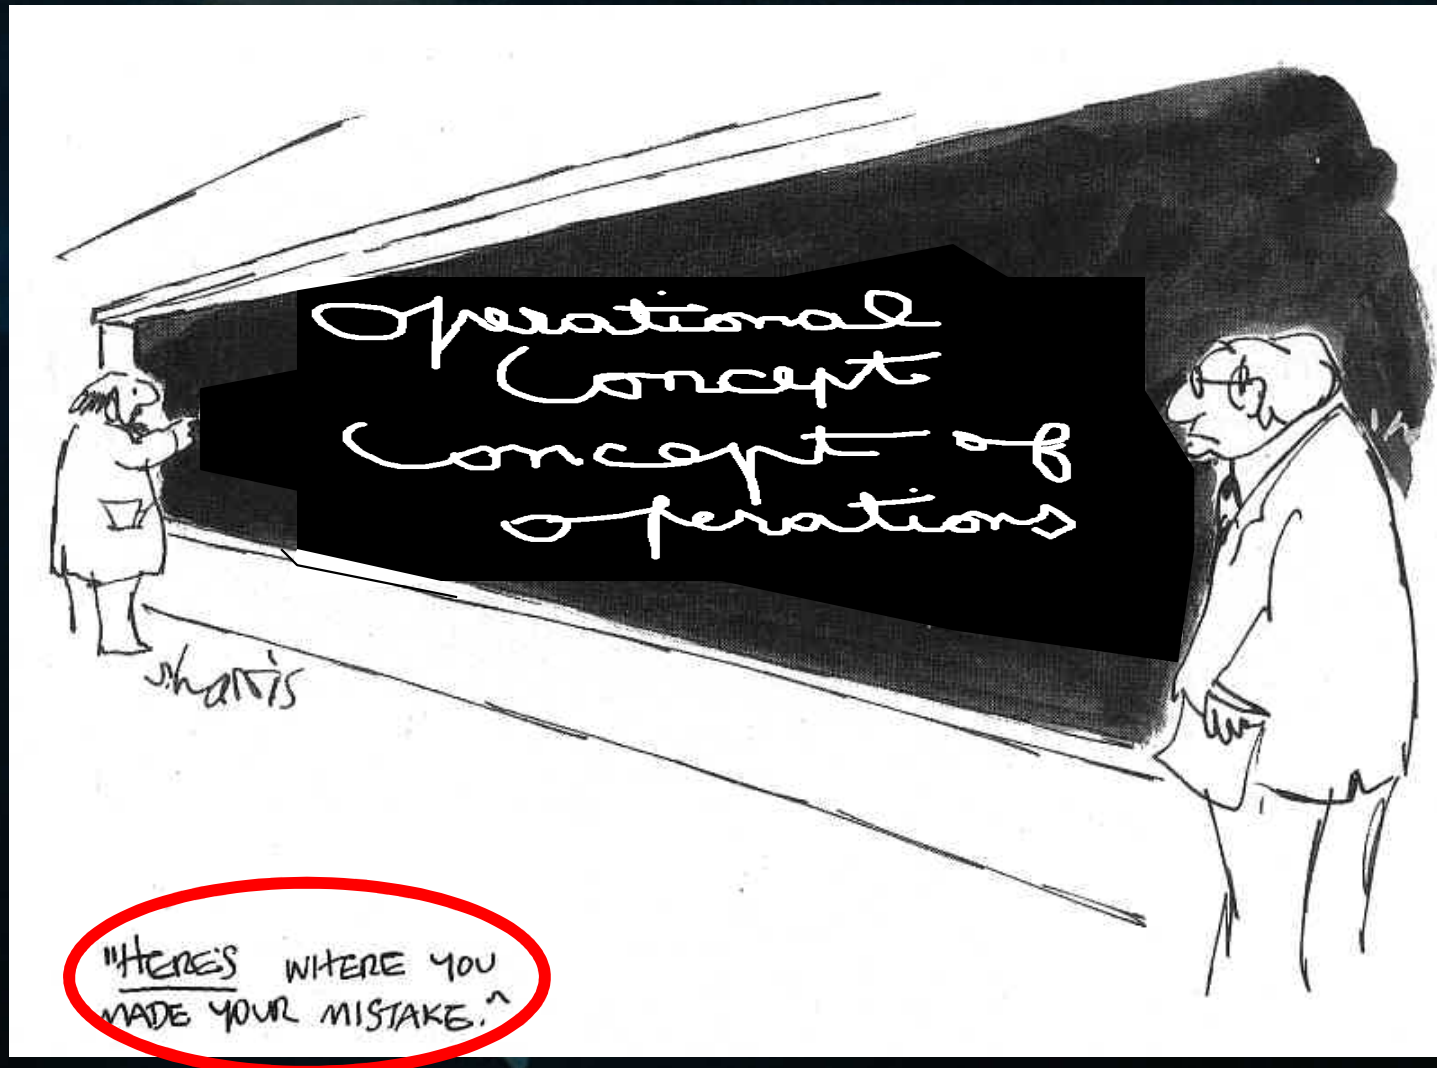 Operational
Concept
Concept of
operations
S. Harris
"HERE'S WHERE YOU
MADE YOUR MISTAKE."